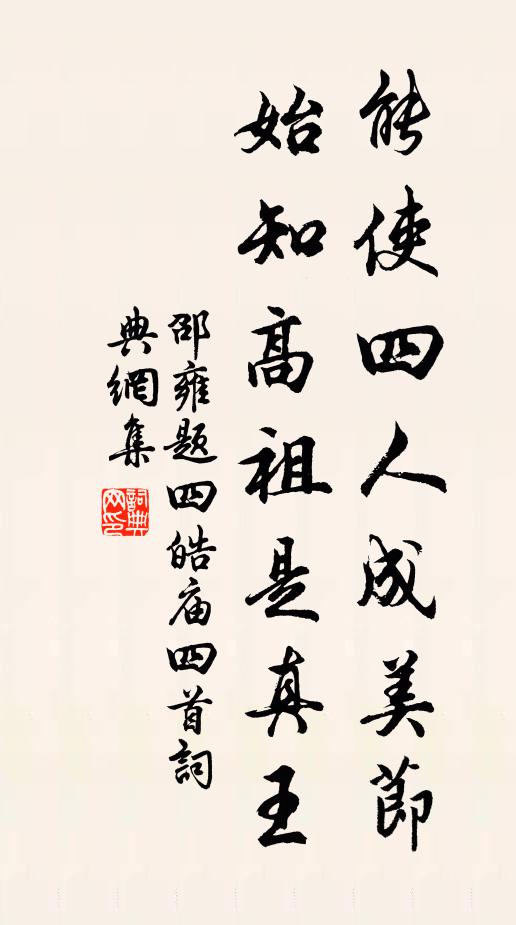 能使四人成美節
始知高祖是真王
邵雍題四皓庙四首詞
典網集
詞典网印